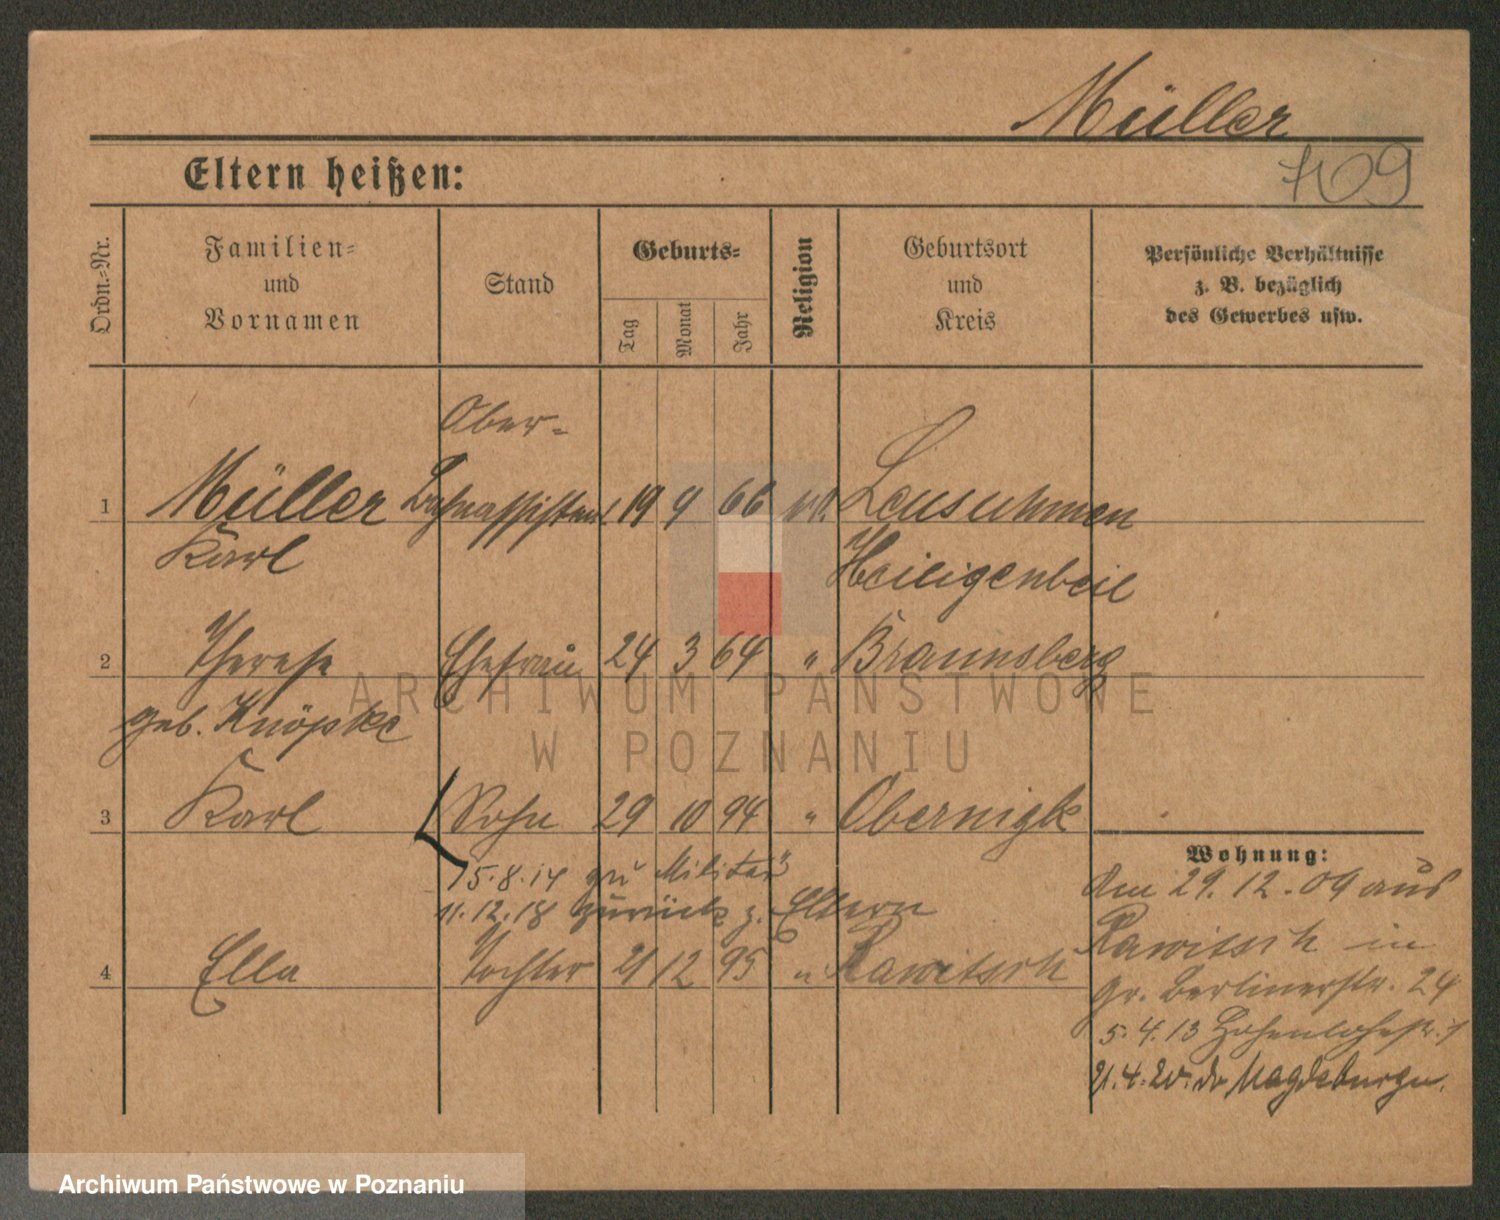 Müller
Eltern heißen:
709
Ordn.-Nr.
Familien-
und
Vornamen
Stand
Geburts-
Tag
Monat
Jahr
Religion
Geburtsort
und
Kreis
Persönliche Verhältnisse
z. B. bezüglich
des Gewerbes usw.
Ober-
1 Müller Bahnassistent 19 9 66 Leusuhmen
Karl Heiligenbeil
2 Therese Ehefrau 24 3 64 " Braunsberg
geb. Knöpke
3 Karl Sohn 29 10 94 " Obernigk
15.8.14 zu Militär
11.12.18 zurück z. Eltern
4 Ella Tochter 21 12 95 " Rawitsch
Wohnung:
Am 29.12.09 aus
Rawitsch in
Gr. Berlinerstr. 24
5.4.13 Hohenlohestr. 1
21.4.20. Magdeburg
ARCHIWUM PAŃSTWOWE
W POZNANIU
Archiwum Państwowe w Poznaniu